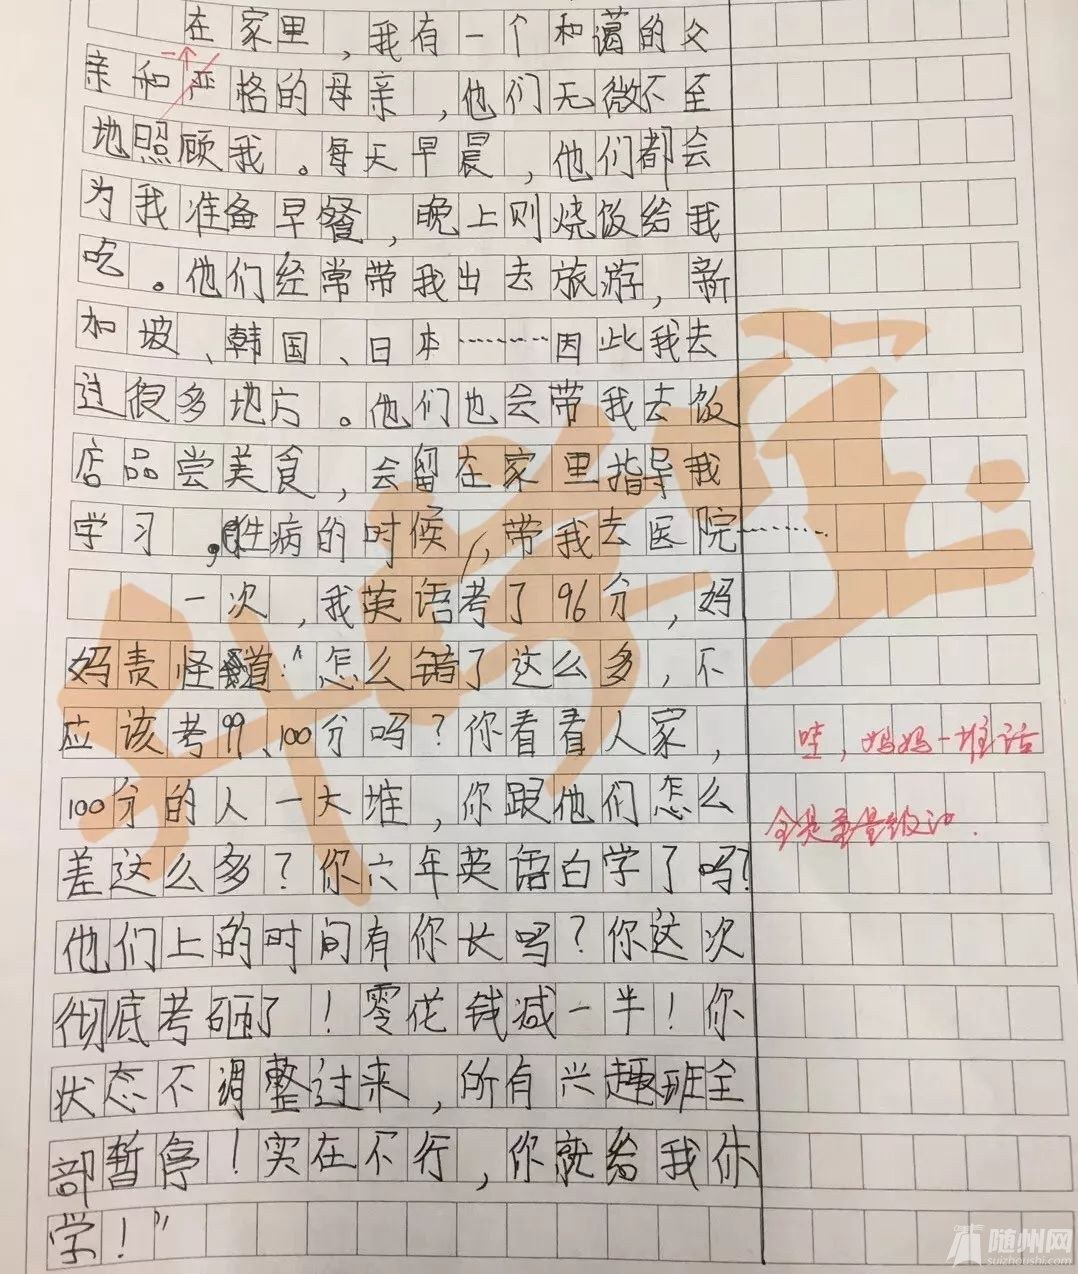 在家里，我有一个和蔼的父
亲和严格的母亲，他们无微不至
地照顾我。每天早晨，他们都会
为我准备早餐，晚上则烧饭给我
吃。他们经常带我出去旅游，新
加坡、韩国、日本………因此我去
过很多地方。他们也会带我去饭
店品尝美食，会留在家里指导我
学习，生病的时候，带我去医院………
一次，我英语考了96分，妈
妈责怪道：“怎么错了这么多，不
应该考99、100分吗？你看看人家，
100分的人一大堆，你跟他们怎么
差这么多？你六年英语白学了吗？
他们上的时间有你长吗？你这次
彻底考砸了！零花钱减一半！你
状态不调整过来，所有兴趣班全
部暂停！实在不行，你就给我休
学！”
哇，妈妈一堆话
全是暴击
升学王
随州网
suizhoushi.com